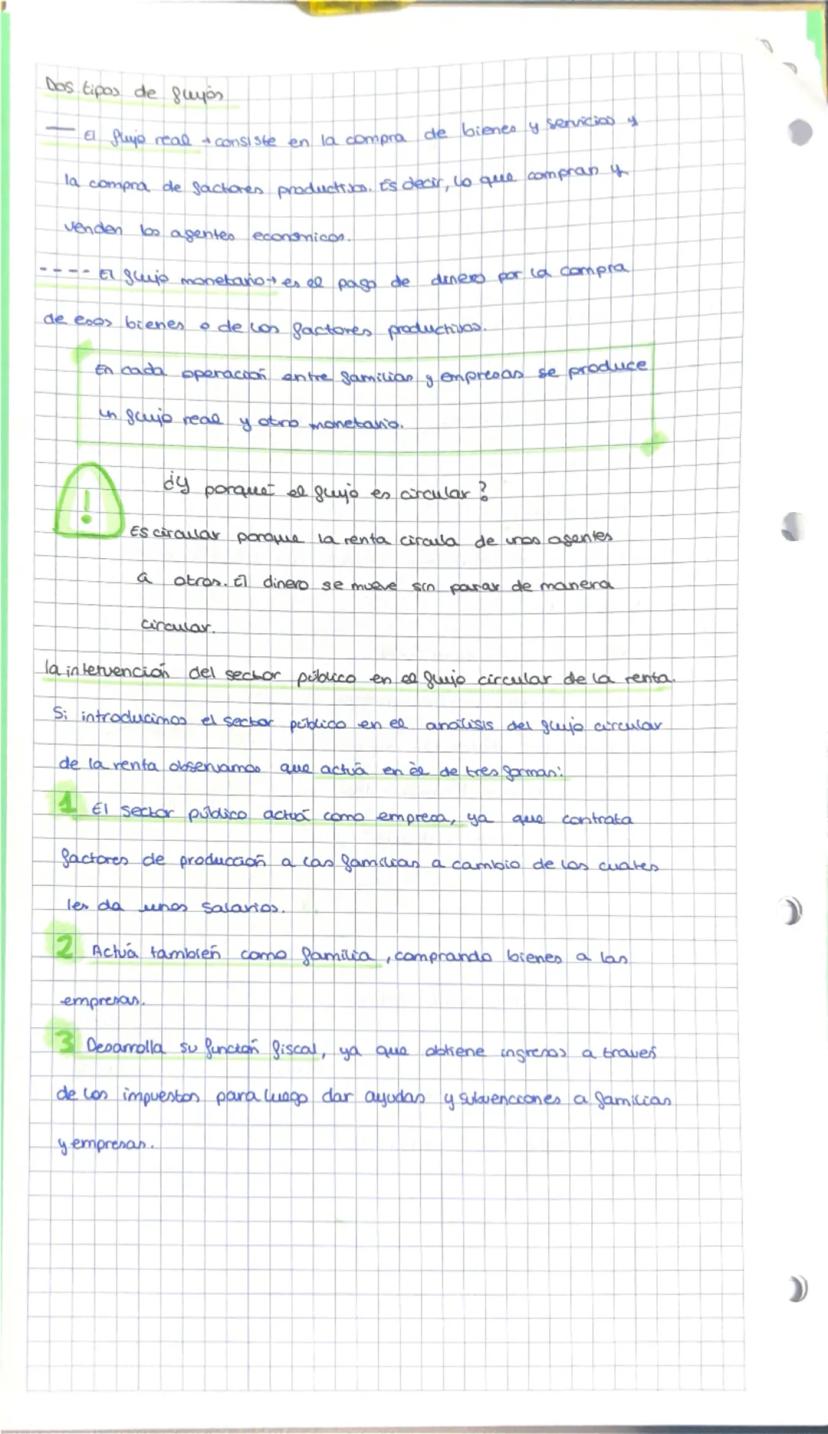 Dos tipos de flujos
— El flujo real → consiste en la compra de bienes y servicios y
la compra de factores productivos. Es decir, lo que compran y
venden los agentes economicos.
---- El flujo monetario → es el pago de dinero por la compra
de esos bienes o de los factores productivos.
En cada operación entre familias y empresas se produce
un flujo real y otro monetario.
! ¿Y porqué el flujo es circular?
Es circular porque la renta circula de unos agentes
a otros. El dinero se mueve sin parar de manera
circular.
la intervención del sector público en el flujo circular de la renta.
Si introducimos el sector público en el análisis del flujo circular
de la renta observamos que actúa en él de tres formas:
1 El sector público actúa como empresa, ya que contrata
factores de producción a las familias a cambio de los cuales
les da unos salarios.
2 Actúa también como familia, comprando bienes a las
empresas.
3 Desarrolla su función fiscal, ya que obtiene ingresos a través
de los impuestos para luego dar ayudas y subvenciones a familias
y empresas.